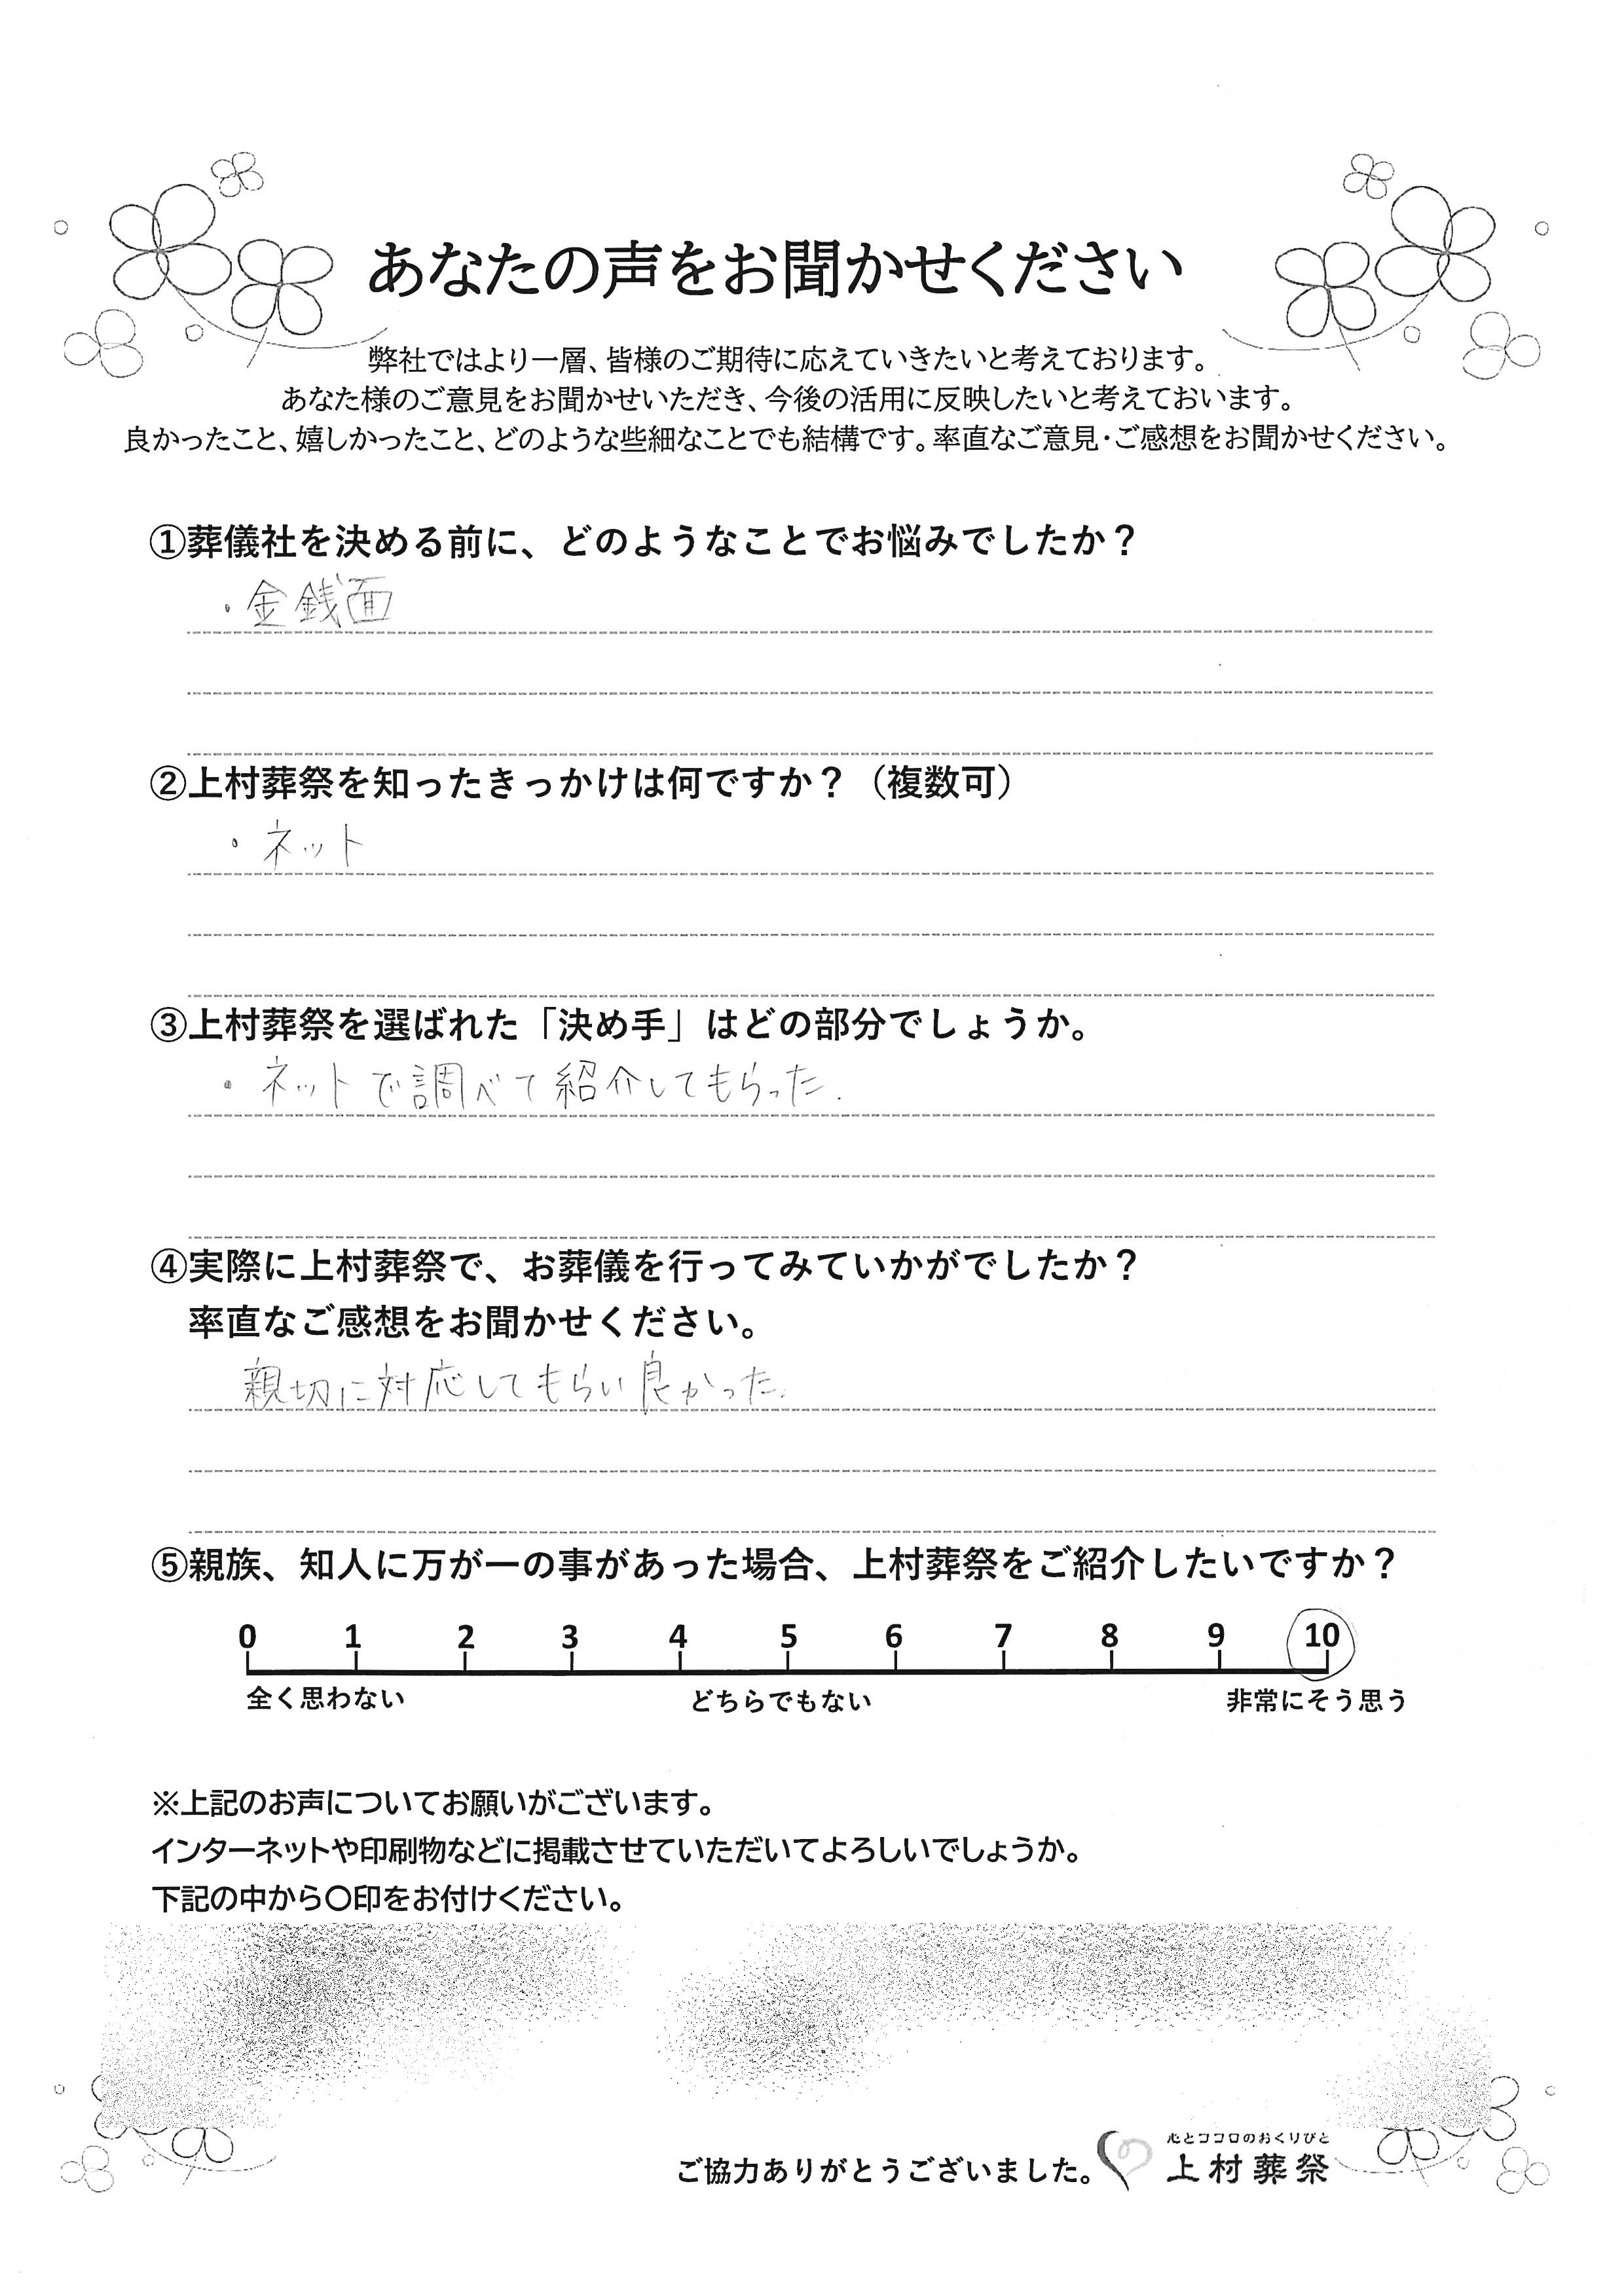 あなたの声をお聞かせください
弊社ではより一層、皆様のご期待に応えていきたいと考えております。
あなた様のご意見をお聞かせいただき、今後の活用に反映したいと考えておいます。
良かったこと、嬉しかったこと、どのような些細なことでも結構です。率直なご意見・ご感想をお聞かせください。
①葬儀社を決める前に、どのようなことでお悩みでしたか？
・金銭面
②上村葬祭を知ったきっかけは何ですか？（複数可）
・ネット
③上村葬祭を選ばれた「決め手」はどの部分でしょうか。
・ネットで調べて紹介してもらった.
④実際に上村葬祭で、お葬儀を行ってみていかがでしたか？
率直なご感想をお聞かせください。
親切に対応してもらい良かった.
⑤親族、知人に万が一の事があった場合、上村葬祭をご紹介したいですか？
0 1 2 3 4 5 6 7 8 9 10
全く思わない どちらでもない 非常にそう思う
※上記のお声についてお願いがございます。
インターネットや印刷物などに掲載させていただいてよろしいでしょうか。
下記の中から〇印をお付けください。
心とココロのおくりびと
ご協力ありがとうございました。 上村葬祭